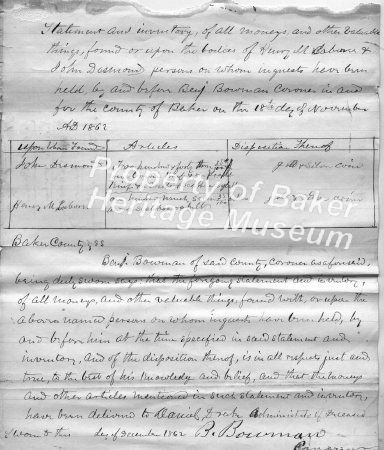 Statement and inventory, of all moneys, and other valuable
things, found or upon the bodies of Henry M Osborn &
John Desmond persons on whom inquests have been
held, by and before Benj Bowman Coroner in and
for the County of Baker on the 18th day of November
AD 1862
upon whom found Articles Disposition Thereof
John Desmond Two hundred & forty three
gold & silver coin
Henry M Osborn
Property of Baker
Heritage Museum
Baker County, SS
Benj. Bowman of said County, Coroner as aforesaid,
being duly sworn says, that the foregoing statement and inventory,
of all moneys, and other valuable things, found with, or upon the
above named persons on whom inquests have been held, by
and before him at the time specified in said statement and
inventory, and of the disposition thereof, is in all respects just and
true, to the best of his knowledge and belief, and that the moneys
and other articles mentioned in such statement and inventory,
have been delivered to Daniel Administrator of deceased
Sworn to this day of December 1862 B. Bowman
Coroner